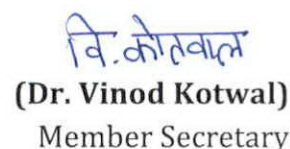 वि. कोतवाल
(Dr. Vinod Kotwal)
Member Secretary